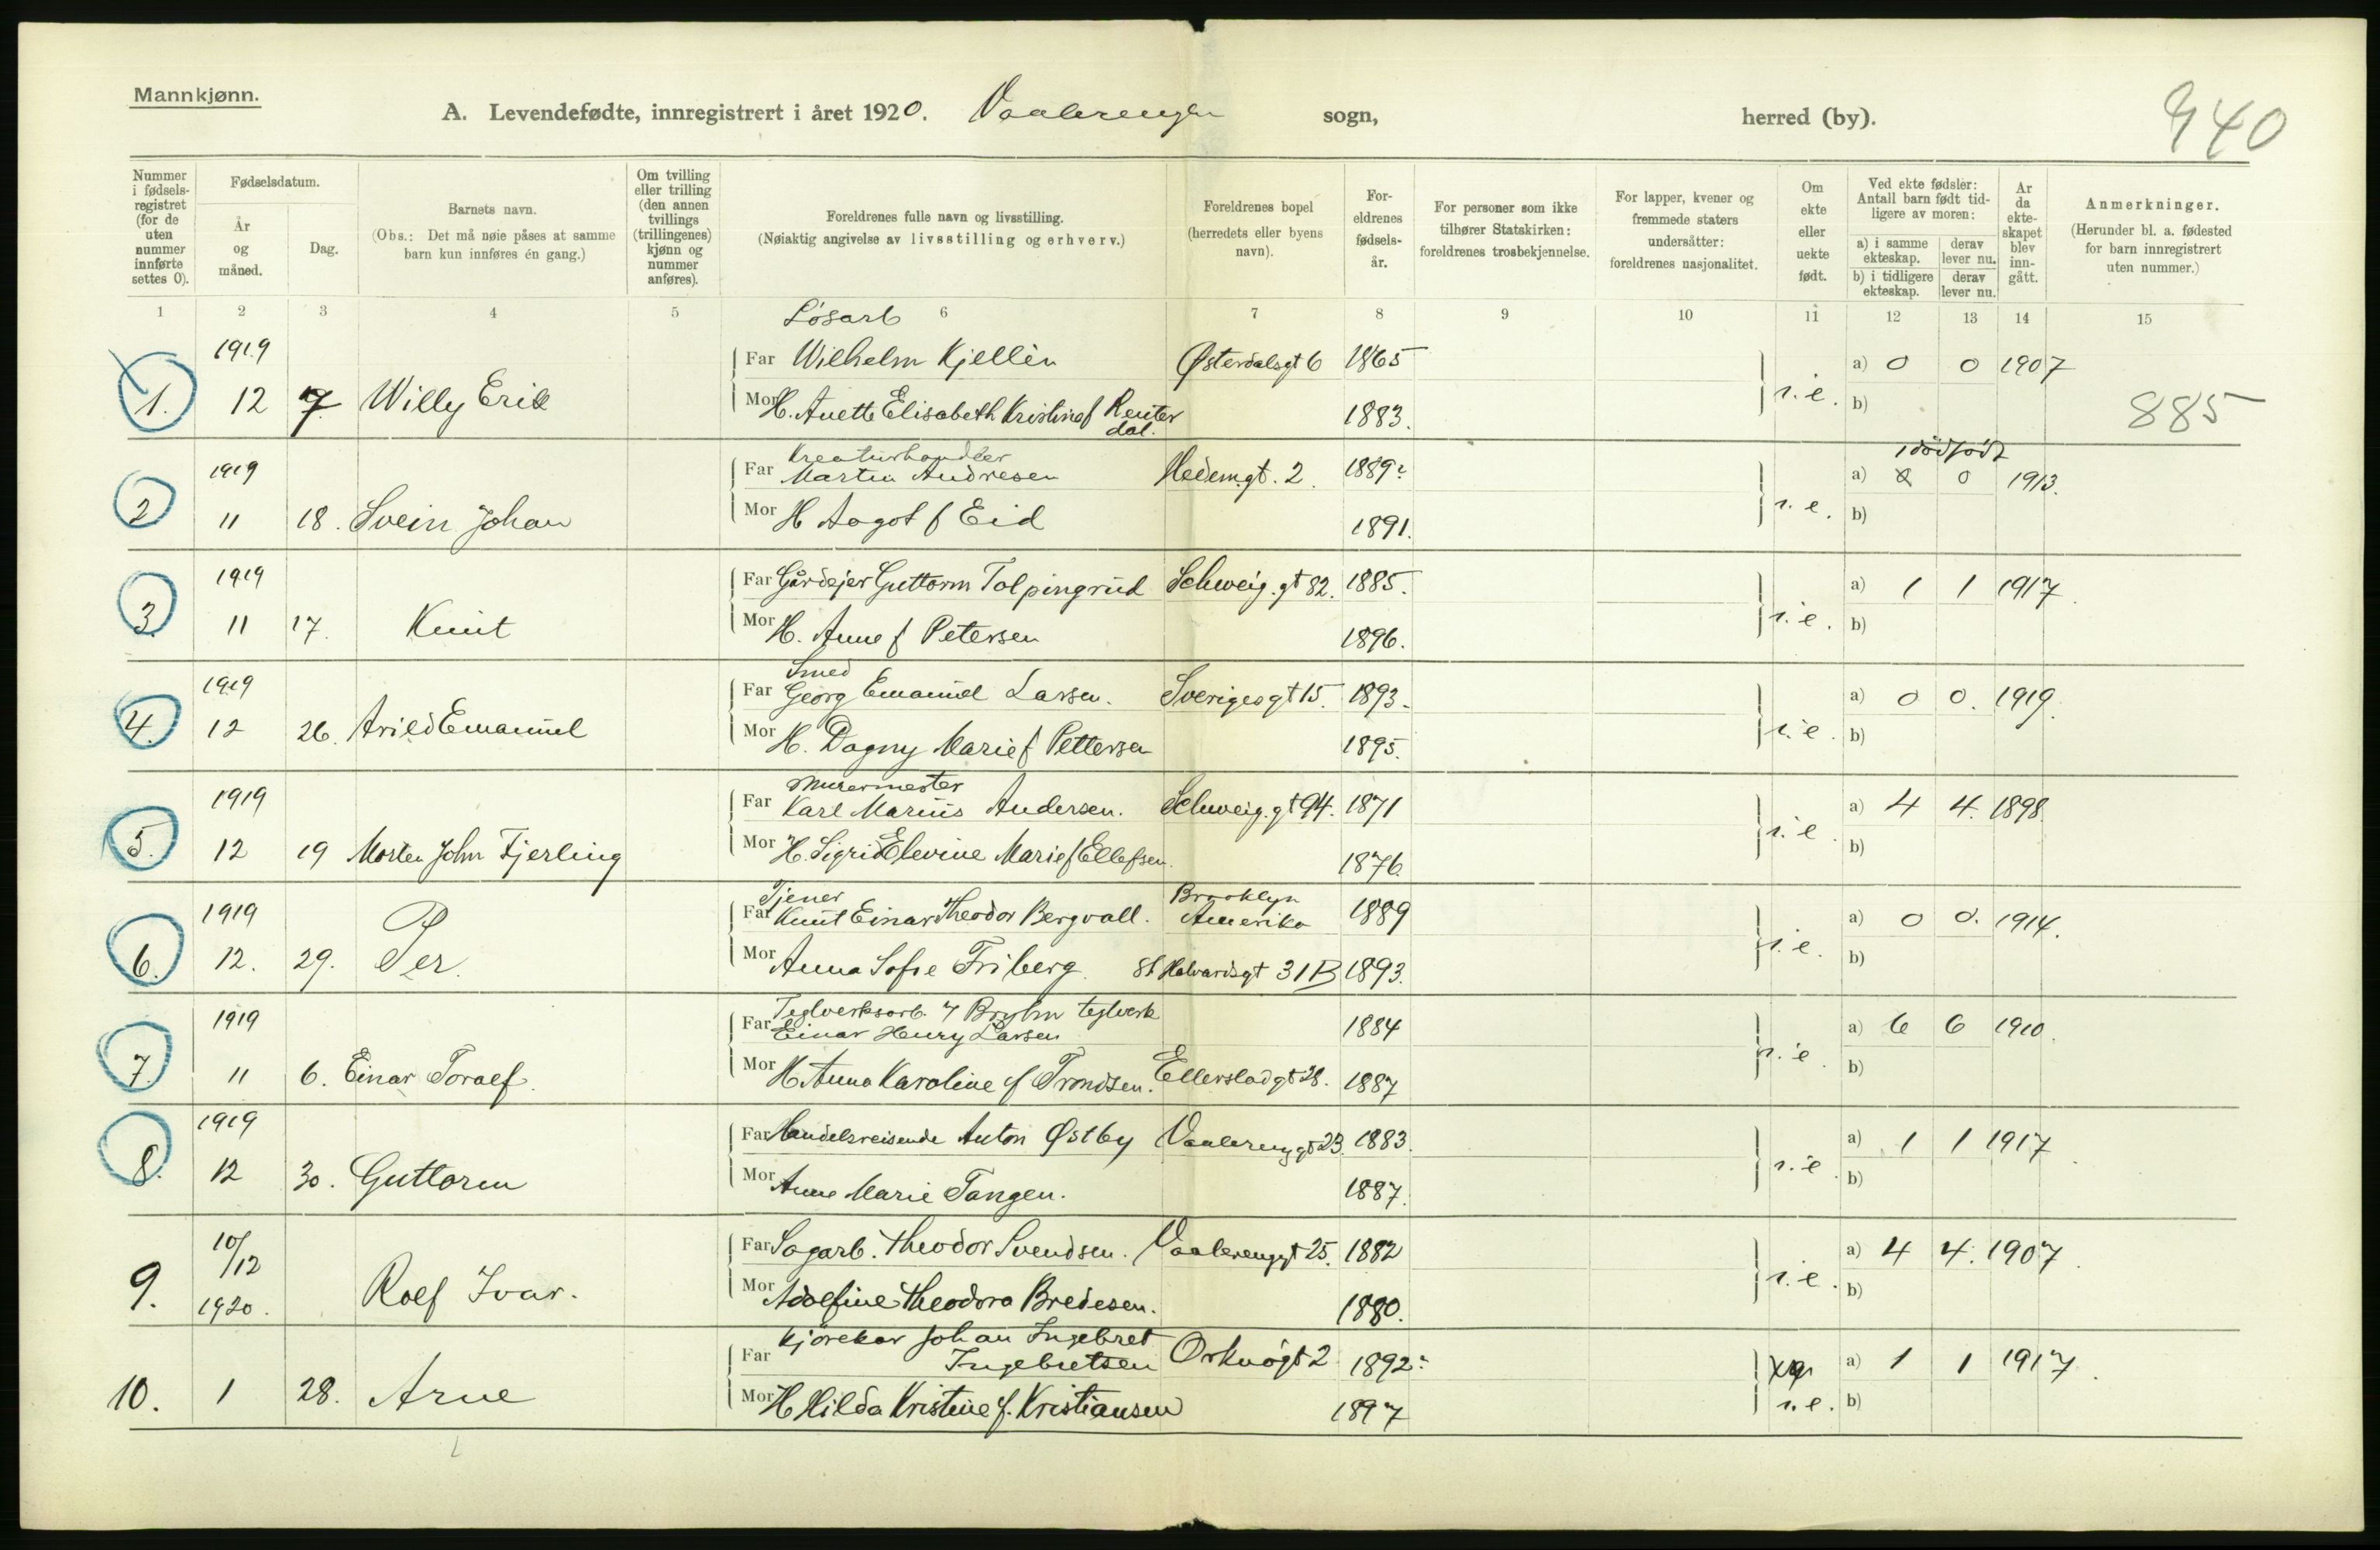 Mannkjønn.
A. Levendefødte, innregistrert i året 1920. Vaalerengen sogn, herred (by).
940
Nummer i fødsels-registret (for de uten nummer innførte settes 0).
Fødselsdatum.
År og måned.
Dag.
Barnets navn.
(Obs.: Det må nøie påses at samme barn kun innføres én gang.)
Om tvilling eller trilling (den annen tvillings (trillingenes) kjønn og nummer anføres).
Foreldrenes fulle navn og livsstilling.
(Nøiaktig angivelse av livsstilling og erhverv.)
Foreldrenes bopel (herredets eller byens navn).
For-eldrenes fødsels-år.
For personer som ikke tilhører Statskirken: foreldrenes trosbekjennelse.
For lapper, kvener og fremmede staters undersåtter: foreldrenes nasjonalitet.
Om ekte eller uekte født.
Ved ekte fødsler: Antall barn født tid-ligere av moren:
a) i samme ekteskap.
derav lever nu.
b) i tidligere ekteskap.
derav lever nu.
Ar da ekte-skapet blev inn-gått.
Anmerkninger.
(Herunder bl. a. fødested for barn innregistrert uten nummer.)
1 2 3 4 5 6 7 8 9 10 11 12 13 14 15
Løsarb
1919 Far Wilhelm Kjellèn Østerdalsgt 6 1865 a) 0 0 1907
1. 12 7 Willy Erik Mor H. Anette Elisabeth Kristine f Reuter 1883. i. e. b) 885
dal.
Kreaturhandler 1 dödfödt
1919 Far Martin Andresen Hedem.gt. 2. 1889 a) 0 1913.
2 11 18. Svein Johan Mor H Aagot f Eid 1891. i. e. b)
1919 Far Gårdejer Guttorm Tolpingrud Schweig.gt 82. 1885. a) 1 1 1917.
3. 11 17. Knut Mor H. Anne f Petersen 1896. i. e. b)
Smed
1919 Far Georg Emanuel Larsen. Sverigesgt 15. 1893. a) 0 0. 1919.
4. 12 26. Arild Emanuel Mor H. Dagny Marie f Pettersen 1895. i. e. b)
Murermester
1919 Far Karl Marius Andersen. Schweig.gt 94. 1871 a) 4 4. 1898.
5. 12 19 Morten John Fjerling Mor H. Sigrid Elevine Marie f Ellefsen. 1876. i. e. b)
Tjener Brooklyn
1919 Far Knut Einar Theodor Bergvall. Amerika 1889 a) 0 0. 1914.
6. 12. 29. Per. Mor Anna Sofie Friberg. St Halvardsgt 31B 1893. i. e. b)
Teglverksarb. teglverk
1919 Far Einar Henry Larsen 1884 a) 6 6 1910.
7. 11 6. Einar Toralf. Mor H. Anna Karoline f Trondsen. Ellerslad gt 28. 1887 i. e. b)
1919 Far Handelsreisende Anton Østby Vaalereng gt 23. 1883. a) 1 1 1917.
8. 12 30. Guttorm Mor Anne Marie Tangen. 1887. i. e. b)
10/12 Far Sagarb. Theodor Svendsen. Vaalerenggt 25. 1882 a) 4 4. 1907.
9. 1920. Rolf Ivar. Mor Adolfine Theodora Bredesen. 1880. i. e. b)
Kjørekar Johan Ingebret
Far Ingebretsen Orknøgt 2 1892 a) 1 1 1917.
10. 1 28. Arne Mor H Hilda Kristine f. Kristiansen 1897 i. e. b)